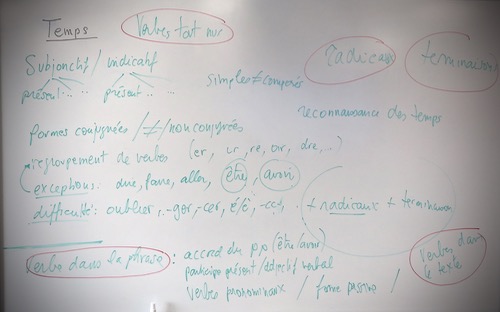 Temps
Verbes tout nu
radicaux
terminaisons
Subjonctif / indicatif
présent... présent...
simples ≠ composés
reconnaissance des temps
formes conjuguées /≠/ non conjuguées
regroupement de verbes (er, ir, re, oir, dre, ...)
exceptions: dire, faire, aller, être, avoir
difficulté: oublier, -ger, -cer, é/è, + radicaux + terminaison
Verbes dans la phrase : accord du pp (être/avoir)
participe présent / adjectif verbal
verbes pronominaux / forme passive /
Verbes dans
le texte